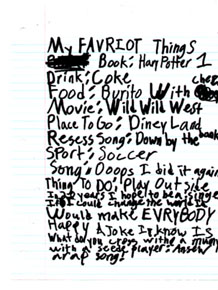 My FAVRIOT Things
Book: Harry Potter 1
Drink: Coke
Food: Burito With
Movie: Wild Wild West
Place To Go: Diney Land
Resess Song: Down by the
Sport: Soccer
Song: Ooops I did it again
Thing To DO: Play Out side
In 20 years I hope to be a singer
If I could change the world I
Would make EVRYBODY
Happy A Joke I know Is
What do you cross with a mummy
with a player: Answer
a rap song!